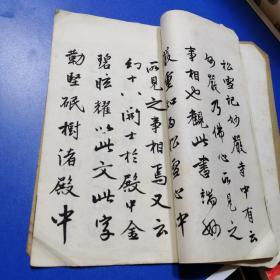 松雪記妙嚴寺中有云
妙嚴乃佛心所見之
事相也觀此書端妙
嚴重和為松雪心中
所見之事相焉又云
幻十八開士於殿中金
碧眩耀以此文此字
勒堅砥樹渚殿中